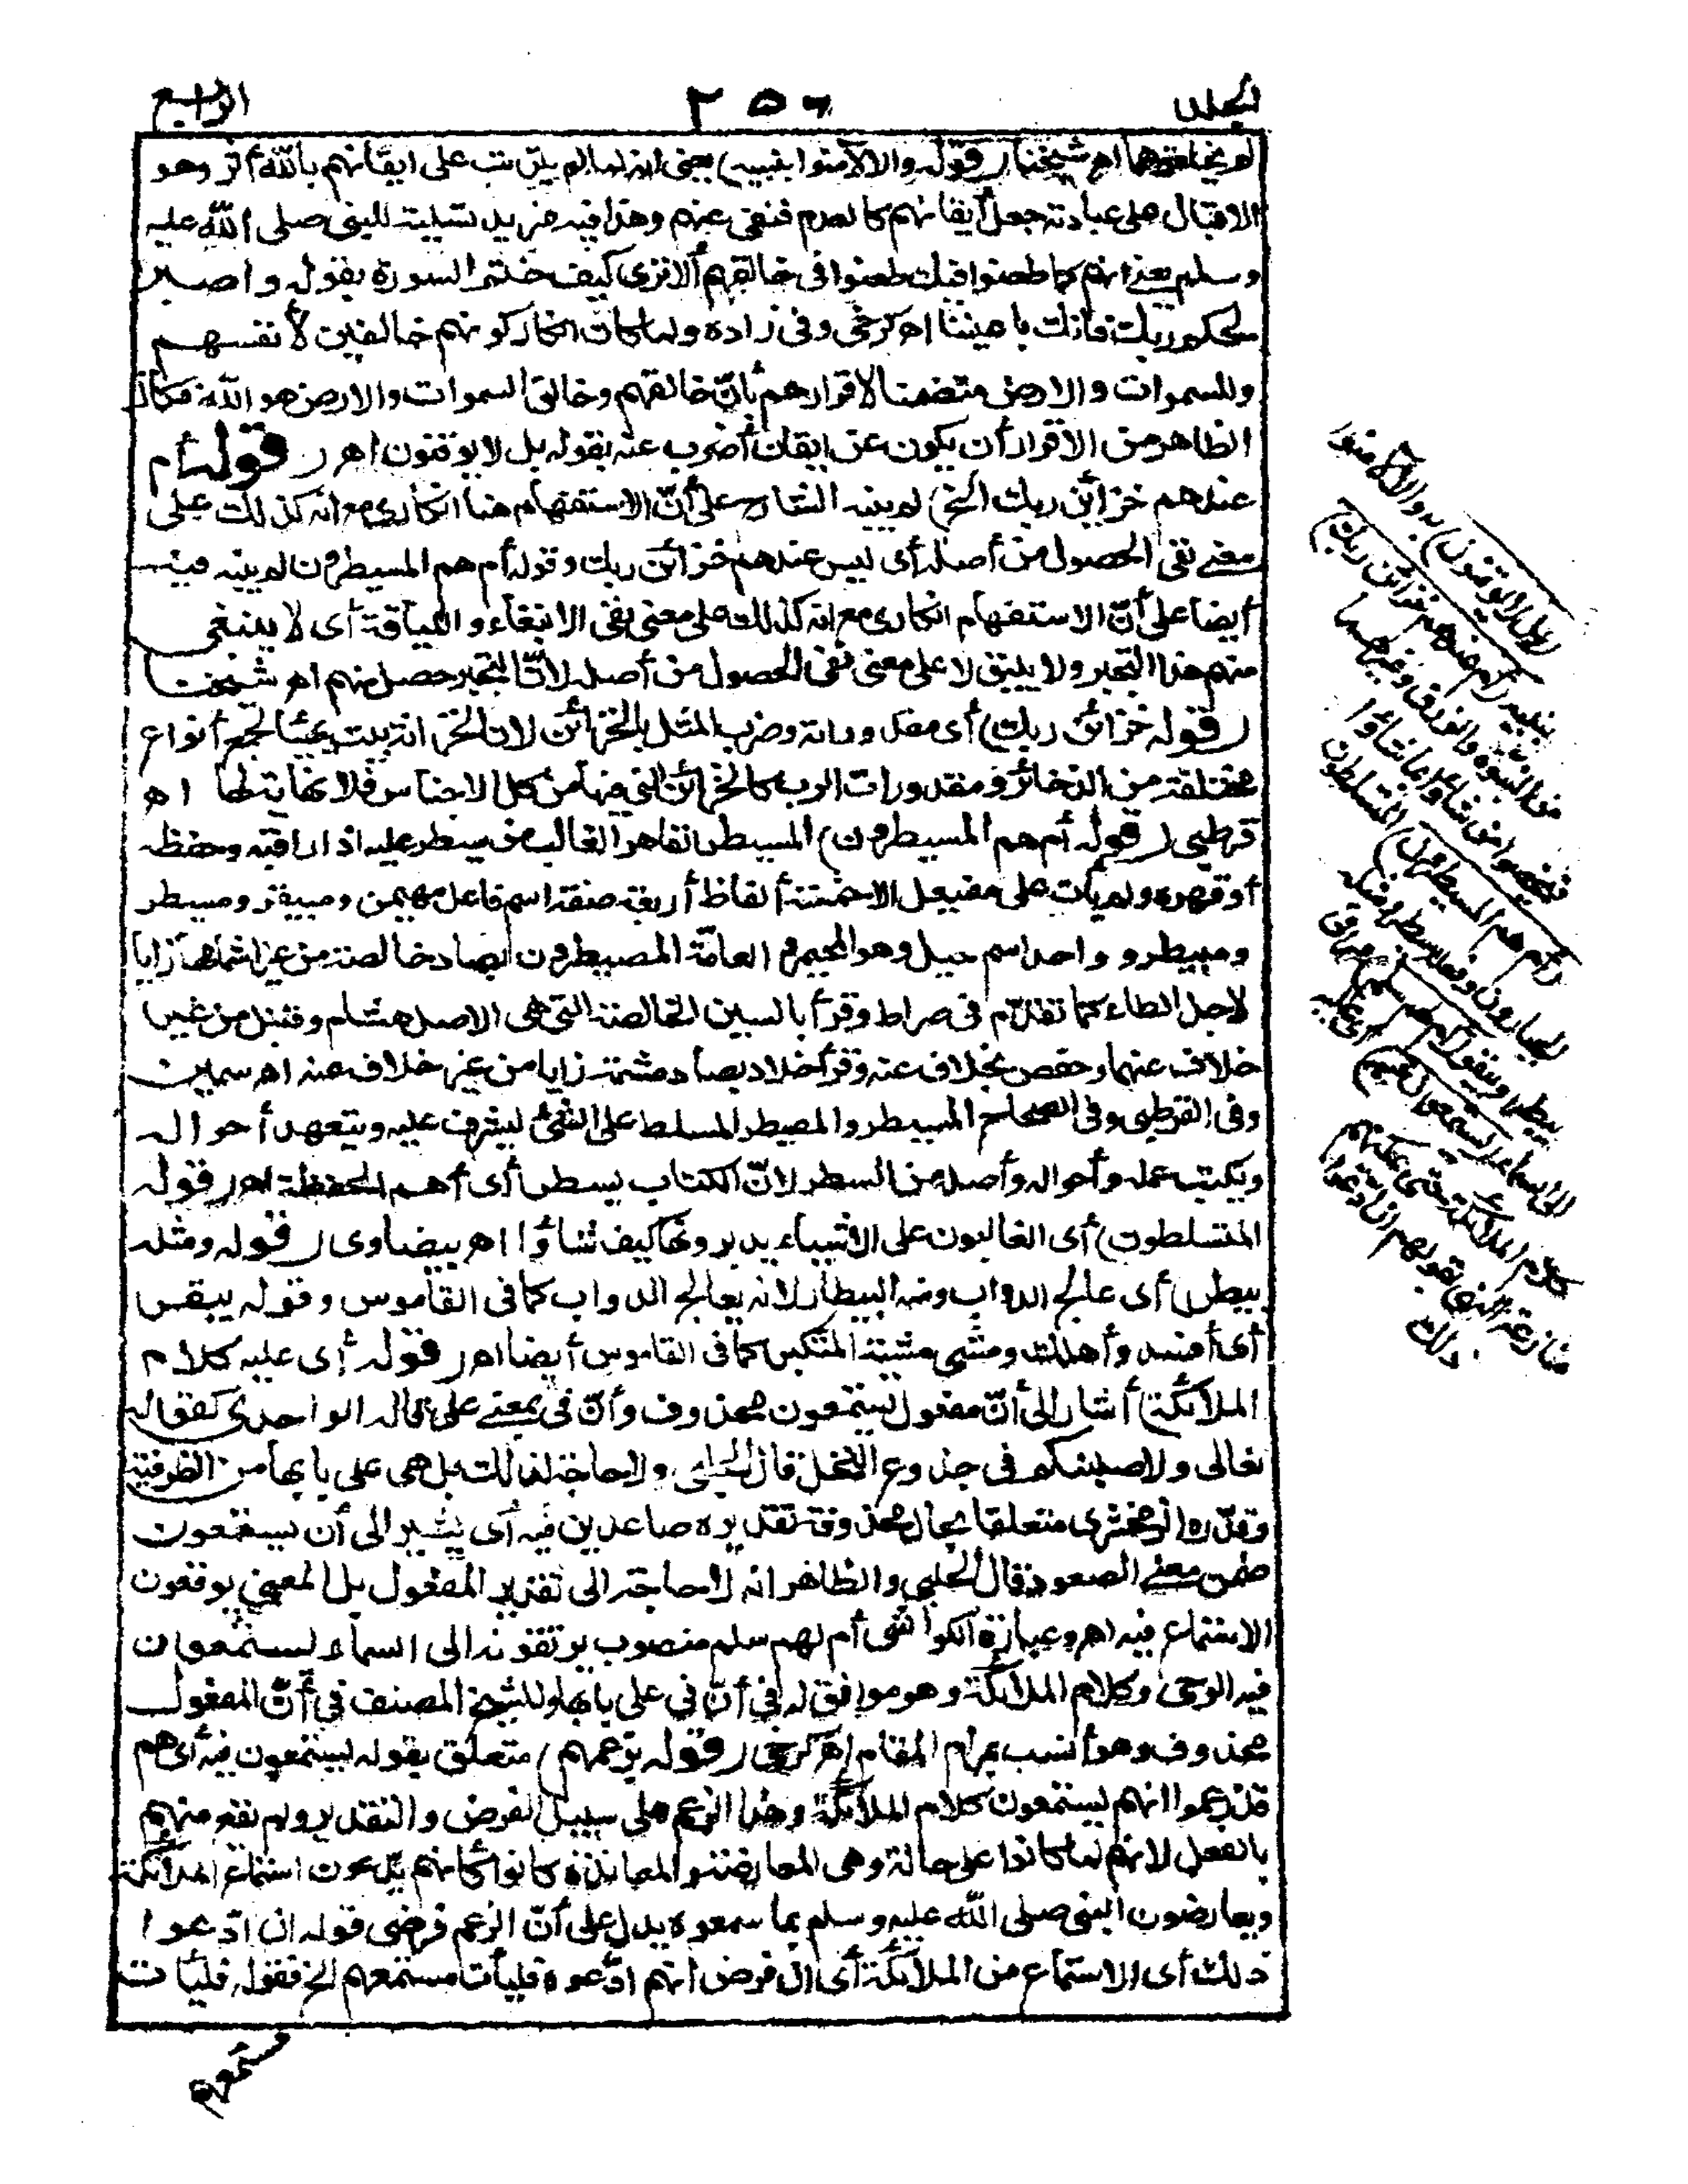 المجلد
٢٥٦
الرابع
لم يخلقوهما اه شيخنا (قوله والا لآمنوا بنبيه) يعني انه لما لم يترتب على ايقانهم بالله أثر وهو
الاقبال على عبادته جعل ايقانهم كالعدم فنفى عنهم وهذا فيه مزيد تسلية للنبي صلى الله عليه
وسلم يعني انهم كما طعنوا فيك طعنوا في خالقهم ألا ترى كيف ختم السورة بقوله واصبر
لحكم ربك فانك باعيننا اه كرخي وفي زاده ولما كان انكار كونهم خالقين لأنفسهم
وللسموات والارض متضمنا لاقرارهم بأن خالقهم وخالق السموات والارض هو الله فكان
الظاهر من الاقرار أن يكون عن ايقان أضرب عنه بقوله بل لا يوقنون اه (قوله أم
عندهم خزائن ربك الخ) لم ينبه الشارح على أن الاستفهام هنا انكاري مع انه كذلك على
معنى نفي الحصول من أصله أي ليس عندهم خزائن ربك وقوله أم هم المسيطرون لم ينبه فيه
أيضا على أن الاستفهام انكاري مع انه كذلك على معنى نفي الانبغاء واللياقة أي لا ينبغي
منهم هذا التجبر ولا يليق لا على معنى نفي الحصول من أصله لأن التجبر حصل منهم اه شيخنا
(قوله خزائن ربك) أي مقدوراته وضرب المثل بالخزائن لان الخزانة بيت يهيأ لجمع أنواع
مختلفة من الذخائر ومقدورات الرب كالخزائن التي فيها من كل الاجناس فلا نهاية لها اه
قرطبي (قوله أم هم المسيطرون) المسيطر القاهر الغالب من سيطر عليه اذا راقبه وحفظه
أو قهره ولم يأت على مفيعل الا خمسة ألفاظ أربعة صفة اسم فاعل مهيمن ومبيقر ومسيطر
ومبيطر وواحد اسم جبل وهو المجيمر العامة المصيطرون بصاد خالصة من غير اشمامها زايا
لاجل الطاء كما تقدم في صراط وقرأ بالسين الخالصة التي هي الاصل هشام وقنبل من غير
خلاف عنهما وحفص بخلاف عنه وقرأ خلاد بصاد مشمة زايا من غير خلاف عنه اه سمين
وفي القرطبي وفي الصحاح المسيطر والمصيطر المسلط على الشئ ليشرف عليه ويتعهد أحواله
ويكتب عمله وأحواله وأصله من السطر لان الكتاب يسطر أي أهم الحفظة اه (قوله
المتسلطون) أي الغالبون على الاشياء يدبرونها كيف شاؤا اه بيضاوى (قوله ومثله
بيطر) أي عالج الدواب ومنه البيطار لانه يعالج الدواب كما في القاموس وقوله بيقر
أي أفسد وأهلك ومشى مشية المتكبر كما في القاموس أيضا اه (قوله أي عليه كلام
الملائكة) أشار الى أن مفعول يستمعون محذوف وأن في بمعنى على قاله الواحدى كقوله
تعالى ولاصلبنكم في جذوع النخل قال الحلبي ولا حاجة لذلك بل هي على بابها من الظرفية
وقدره الزمخشرى متعلقا بحال محذوفة تقديره صاعدين فيه أي يشير الى أن يستمعون
ضمن معنى الصعود قال الحلبي والظاهر انه لا حاجة الى تقدير المفعول بل المعنى يوقعون
الاستماع فيه اه وعبارة الكواشي أم لهم سلم منصوب يرتقون به الى السماء يستمعون
فيه الوحى وكلام الملائكة وهو موافق له في أن في على بابها وللشيخ المصنف في أن المفعول
محذوف وهو أنسب بمرام المقام اه كرخى (قوله بزعمهم) متعلق بقوله يستمعون فيه أي هم
قد زعموا انهم يستمعون كلام الملائكة وهذا الزعم على سبيل الفرض والتقدير ولم يقع منهم
بالفعل لانهم لما كانوا على حالة وهي المعارضة والمعاندة كانوا كأنهم يدعون استماع الملائكة
ويعارضون النبي صلى الله عليه وسلم بما سمعوه يدل على أن الزعم فرضى قوله ان ادعوا
ذلك أي الاستماع من الملائكة أي ان فرض انهم ادعوه فليأت مستمعهم الخ فقوله فليأت
مستمعهم
(بل لا يوقنون) به والا لآمنوا
بنبيه (أم عندهم خزائن ربك)
من النبوة والرزق وغيرهما
فيخصوا من شاؤا بما شاؤا
(أم هم المسيطرون) المتسلطون
الجبارون وفعله سيطر ومثله
بيطر وبيقر (أم لهم سلم) مرقى
الى السماء (يستمعون فيه) أي عليه
كلام الملائكة حتى يمكنهم
منازعة النبي بزعمهم ان ادعوا
ذلك